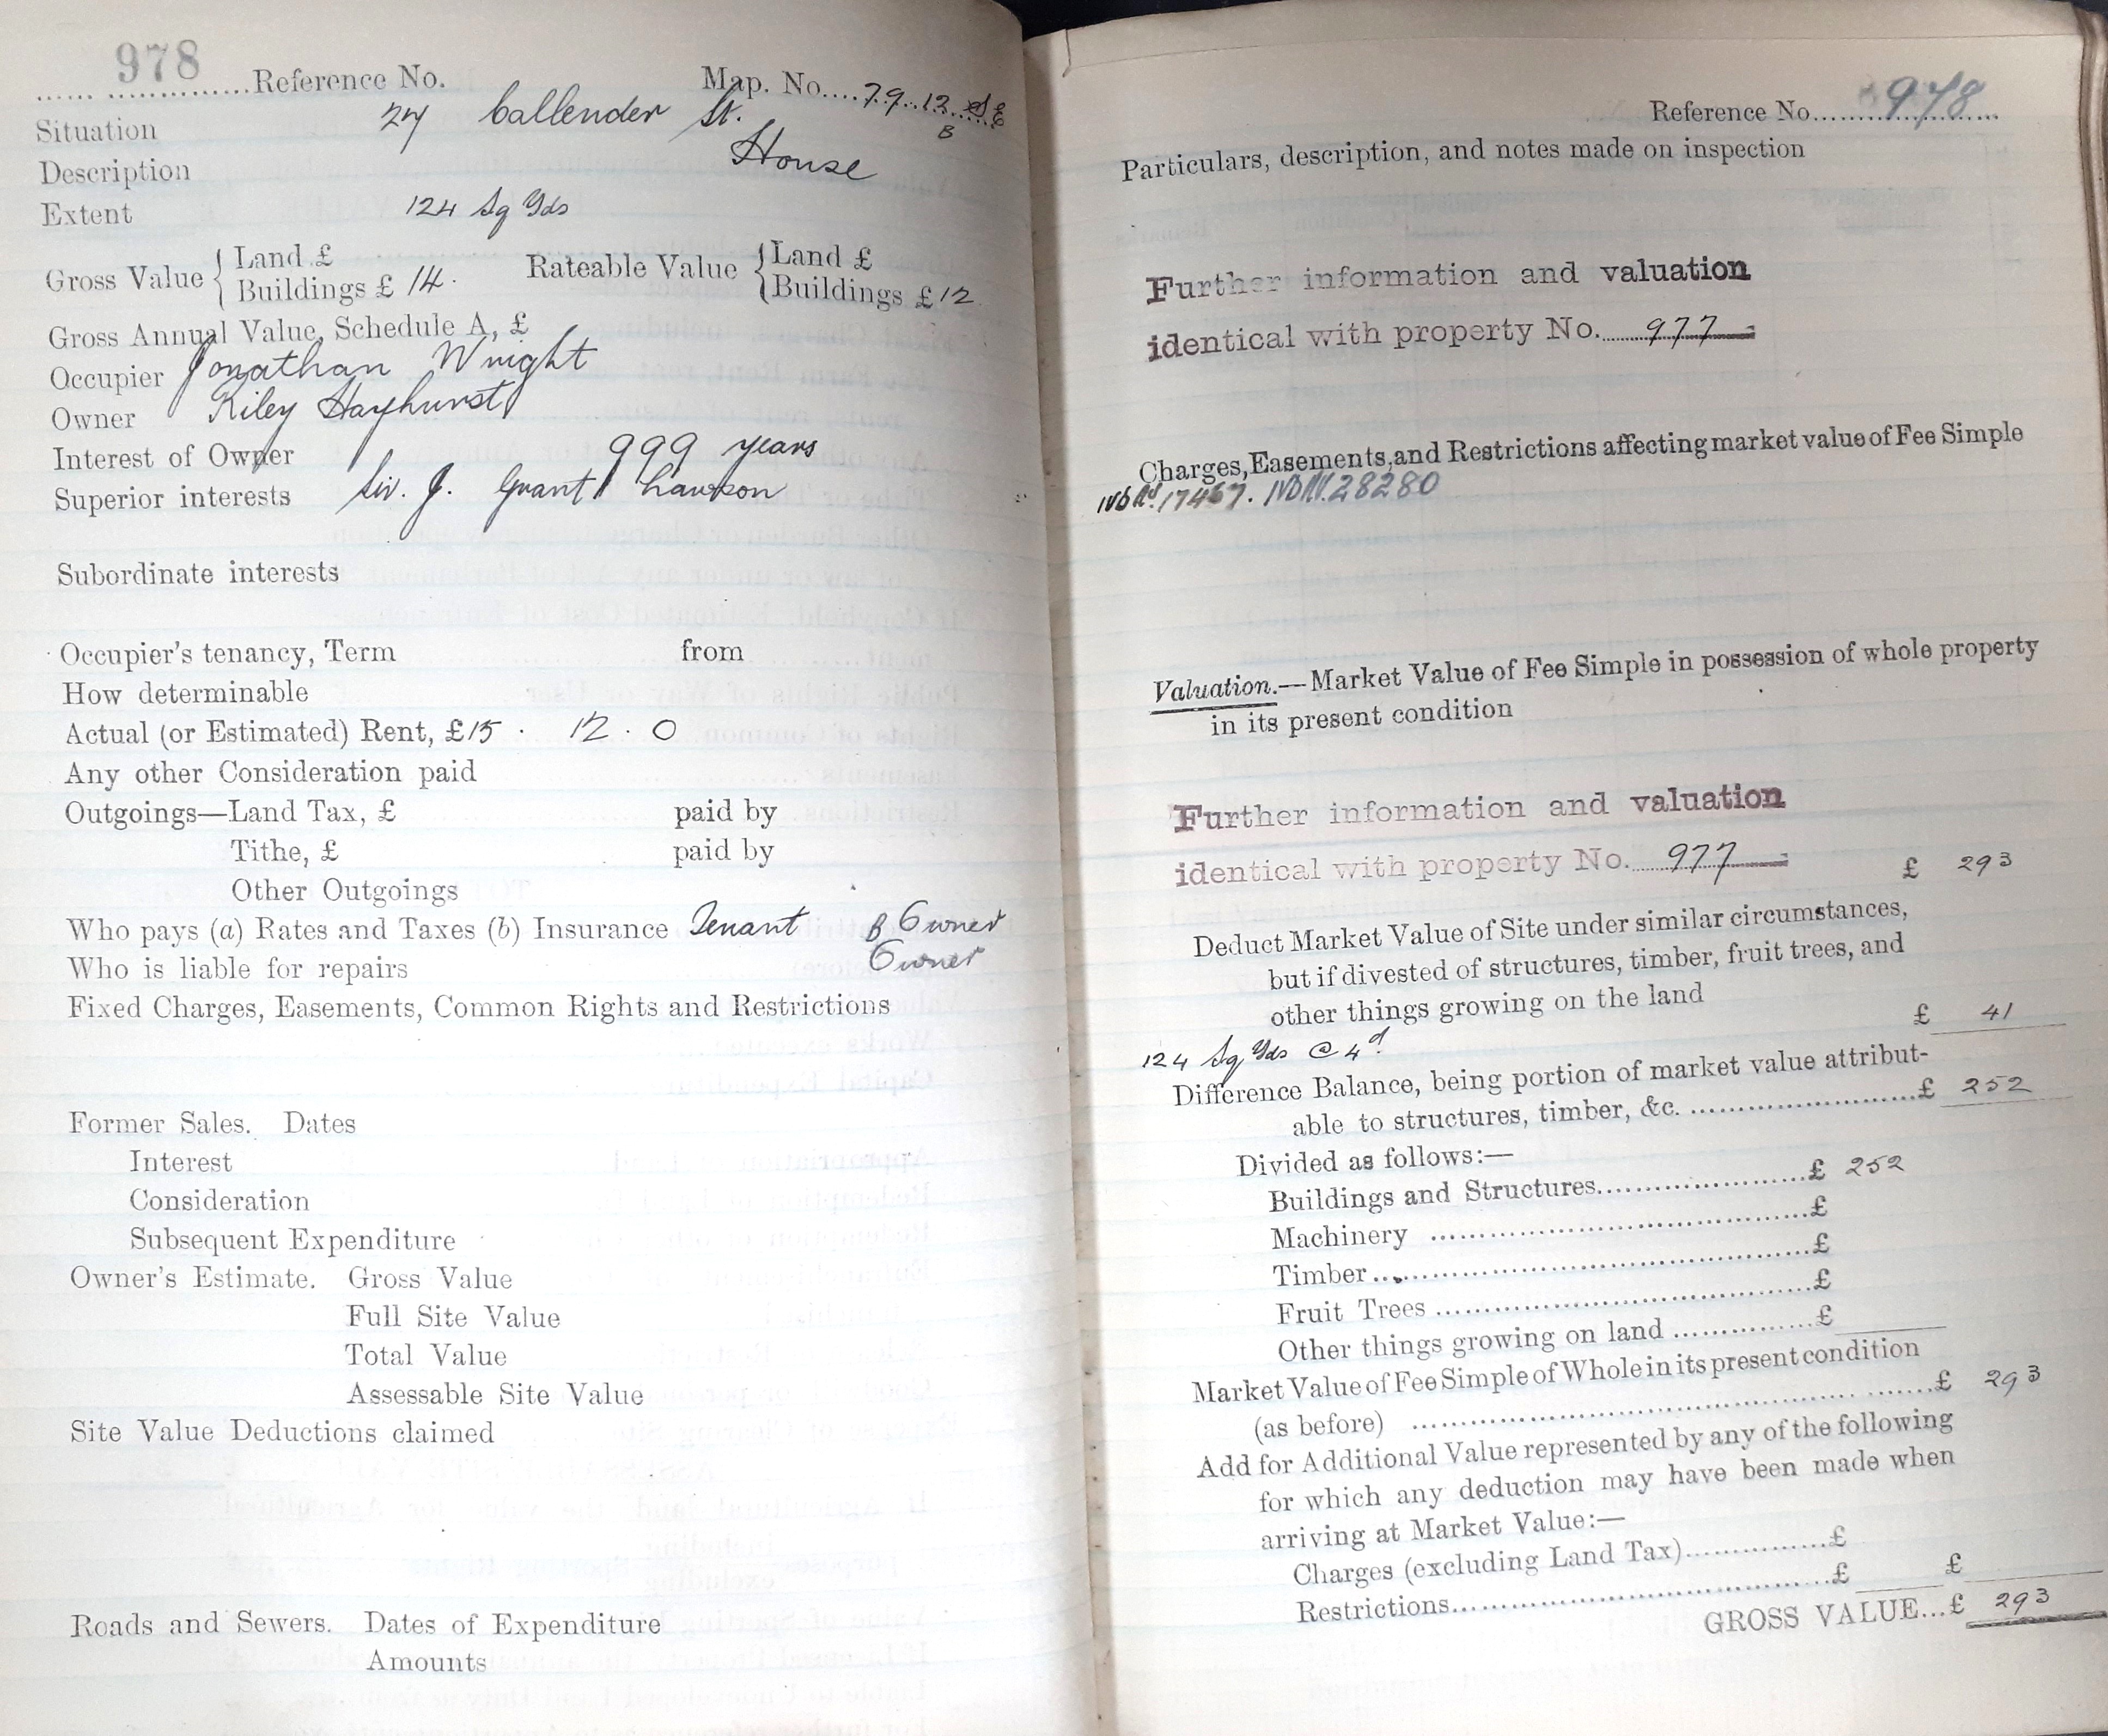 978
Reference No. Map. No. 79. 12. SE
B
Situation 27 Callender St.
Description House
Extent 124 Sq Yds
Gross Value { Land £ Rateable Value { Land £
Buildings £ 14. Buildings £12
Gross Annual Value, Schedule A, £
Occupier Jonathan Wright
Owner Riley Hayhurst
Interest of Owner 999 years
Superior interests Sir. J. Grant Lawson
Subordinate interests
Occupier's tenancy, Term from
How determinable
Actual (or Estimated) Rent, £15 . 12 . 0
Any other Consideration paid
Outgoings—Land Tax, £ paid by
Tithe, £ paid by
Other Outgoings
Who pays (a) Rates and Taxes (b) Insurance Tenant B Owner
Who is liable for repairs Owner
Fixed Charges, Easements, Common Rights and Restrictions
Former Sales. Dates
Interest
Consideration
Subsequent Expenditure
Owner's Estimate. Gross Value
Full Site Value
Total Value
Assessable Site Value
Site Value Deductions claimed
Roads and Sewers. Dates of Expenditure
Amounts
Reference No. 978
Particulars, description, and notes made on inspection
Further information and valuation
identical with property No. 977
Charges, Easements, and Restrictions affecting market value of Fee Simple
17467. 28280
Valuation.—Market Value of Fee Simple in possession of whole property
in its present condition
Further information and valuation
identical with property No. 977
£ 293
Deduct Market Value of Site under similar circumstances,
but if divested of structures, timber, fruit trees, and
other things growing on the land
£ 41
124 Sq Yds @ 4d.
Difference Balance, being portion of market value attribut-
able to structures, timber, &c. £ 252
Divided as follows:—
Buildings and Structures £ 252
Machinery £
Timber £
Fruit Trees £
Other things growing on land £
Market Value of Fee Simple of Whole in its present condition
(as before) £ 293
Add for Additional Value represented by any of the following
for which any deduction may have been made when
arriving at Market Value:—
Charges (excluding Land Tax) £
Restrictions £ £
GROSS VALUE...£ 293